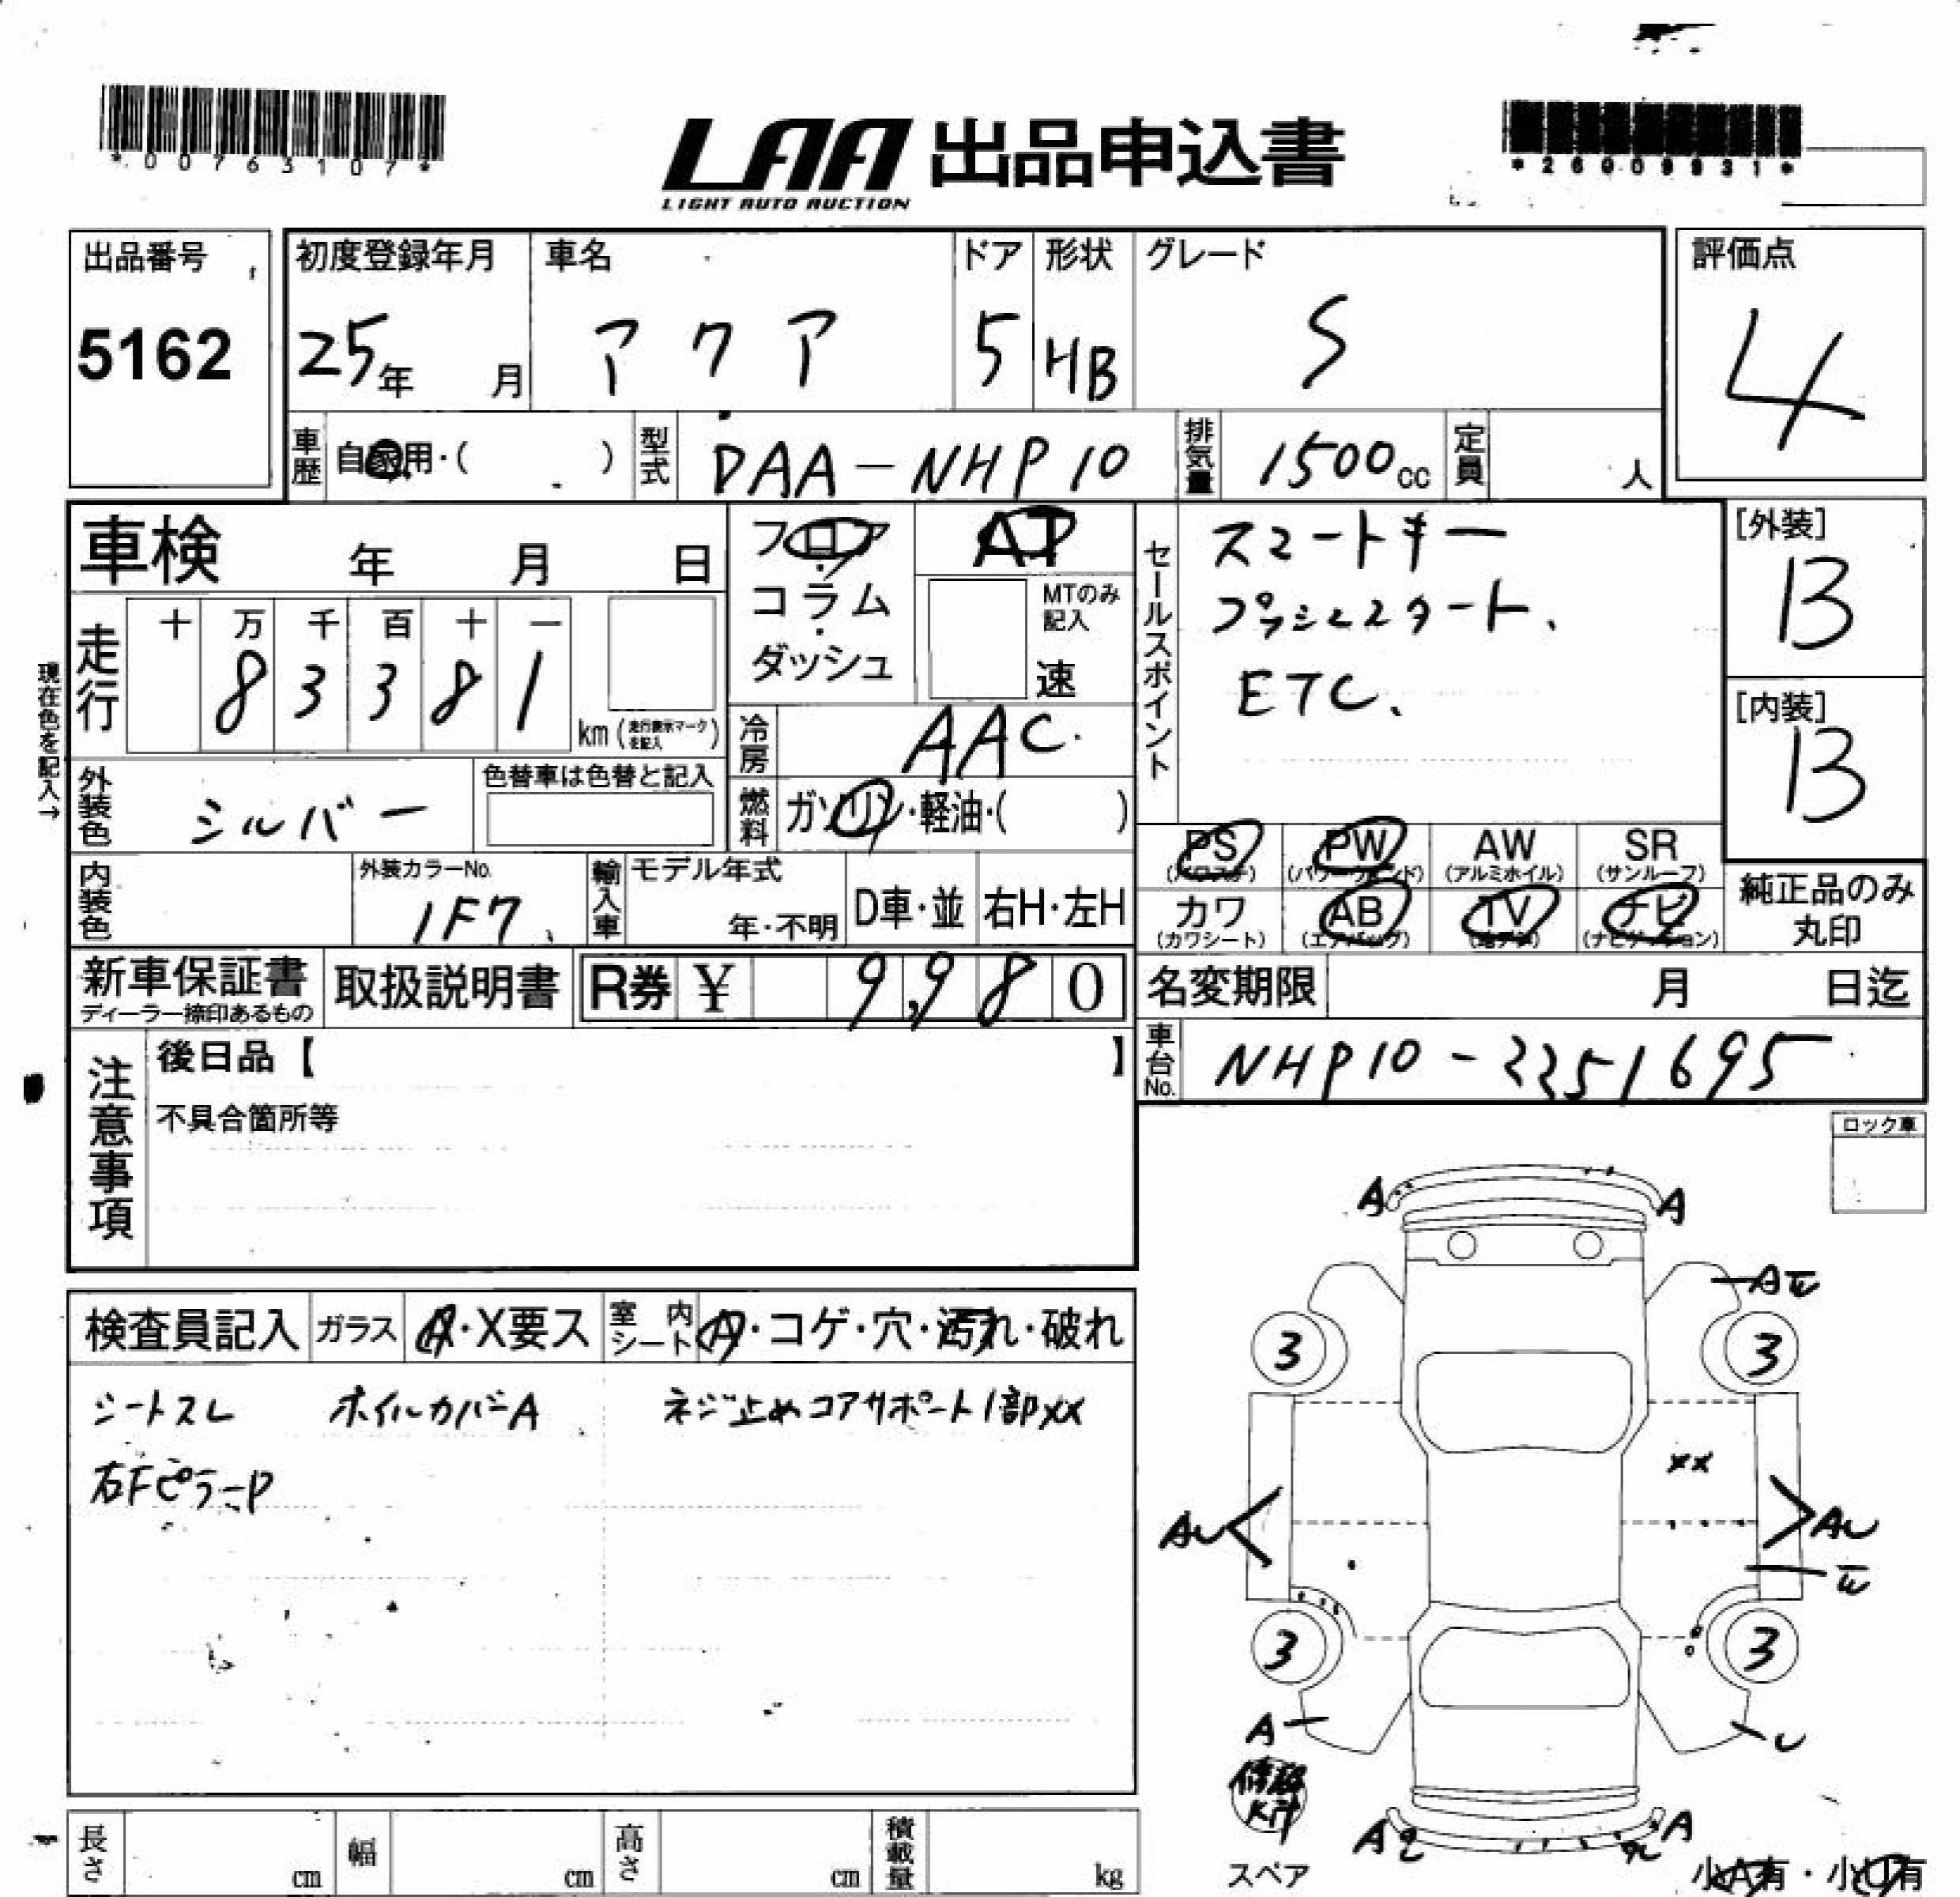 *00763107*
LAA 出品申込書
LIGHT AUTO AUCTION
*26009931*
出品番号
5162
初度登録年月
25年 月
車名
アクア
ドア
5
形状
HB
グレード
S
評価点
4
車歴
自家用・( )
型式
DAA-NHP10
排気量
1500cc
定員
人
車検 年 月 日
フロア・コラム・ダッシュ
AT
MTのみ記入
速
セールスポイント
スマートキー
プッシュスタート、
ETC、
[外装]
B
[内装]
B
現在色を記入→
走行
十 万 千 百 十 一
8 3 3 8 1
km(走行表示マークを記入)
冷房
AAC
外装色
シルバー
色替車は色替と記入
燃料
ガソリン・軽油・( )
PS
(パワステ)
PW
(パワーウィンド)
AW
(アルミホイル)
SR
(サンルーフ)
カワ
(カワシート)
AB
(エアバッグ)
TV
(地デジ)
ナビ
(ナビゲーション)
純正品のみ
丸印
内装色
外装カラーNo.
1F7
輸入車
モデル年式
年・不明
D車・並
右H・左H
新車保証書
ディーラー捺印あるもの
取扱説明書
R券 ¥ 9,980
名変期限 月 日迄
車台No.
NHP10-2251695
注意事項
後日品【 】
不具合箇所等
ロック車
検査員記入
ガラス
A・X要ス
室内シート
A・コゲ・穴・汚れ・破れ
シートスレ ホイルカバーA ネジ止めコアサポート1部XX
右FピラーP
A A
AW
3 3
XX
AU AU
W
3 3
A U
修理Kit
A2 A
スペア
小A有・小U有
長さ cm
幅 cm
高さ cm
積載量 kg